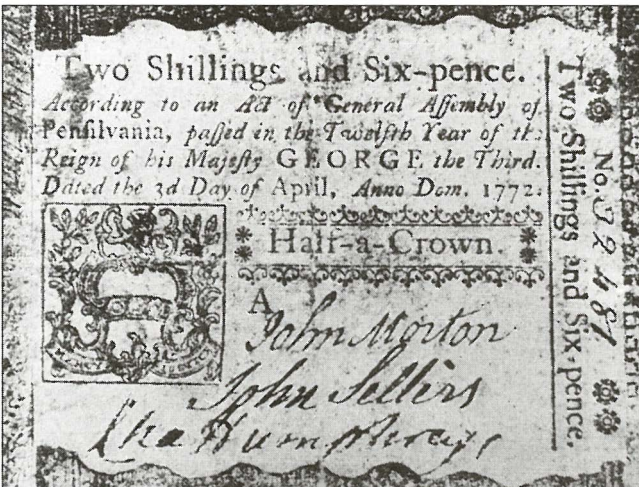 Two Shillings and Six-pence.
According to an Act of General Assembly of
Pensilvania, paſſed in the Twelfth Year of the
Reign of his Majeſty GEORGE the Third.
Dated the 3d Day of April, Anno Dom. 1772.
Half-a-Crown.
A
John Morton
John Sellers
Cha Humphreys
Two Shillings and Six-pence.
No. 52481